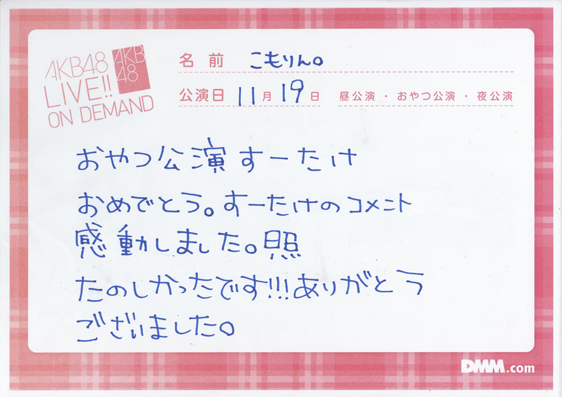 AKB48
LIVE!!
ON DEMAND
AKB
48
名前 こもりん。
公演日 11月19日 昼公演・おやつ公演・夜公演
おやつ公演 すーたけ
おめでとう。すーたけのコメント
感動しました。照
たのしかったです!!!ありがとう
ございました。
DMM.com